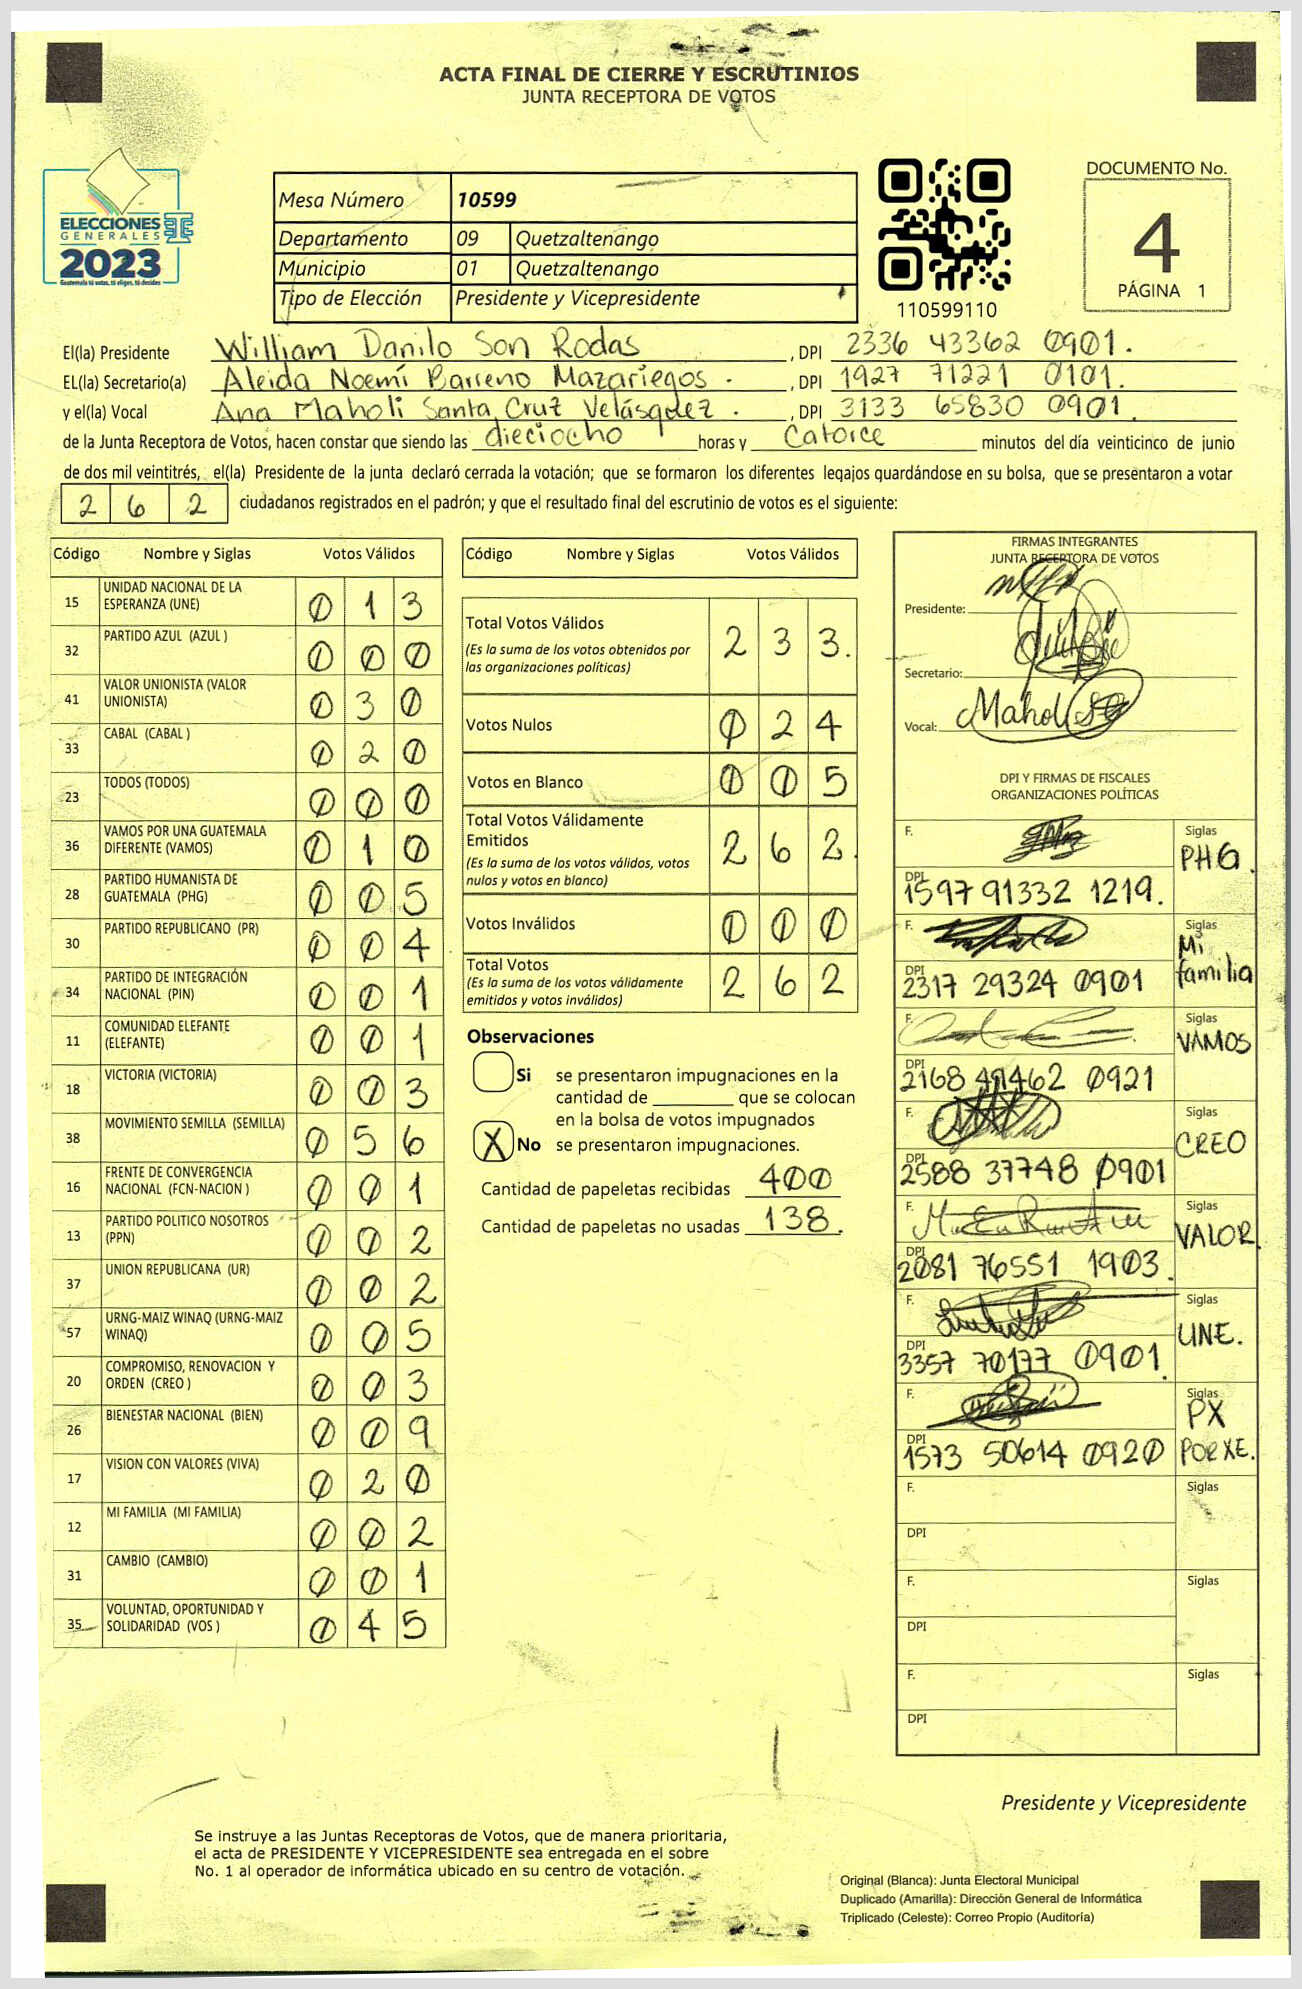 ACTA FINAL DE CIERRE Y ESCRUTINIOS
JUNTA RECEPTORA DE VOTOS
ELECCIONES
GENERALES
2023
Guatemala tú votas, tú eliges, tú decides
Mesa Número 10599
Departamento 09 Quetzaltenango
Municipio 01 Quetzaltenango
Tipo de Elección Presidente y Vicepresidente
110599110
DOCUMENTO No.
4
PÁGINA 1
El(la) Presidente William Danilo Son Rodas, DPI 2336 43362 0901.
EL(la) Secretario(a) Aleida Noemí Barreno Mazariegos., DPI 1927 71221 0101.
y el(la) Vocal Ana Maholi Santa Cruz Velásquez., DPI 3133 65830 0901.
de la Junta Receptora de Votos, hacen constar que siendo las dieciocho horas y Catorce minutos del día veinticinco de junio
de dos mil veintitrés, el(la) Presidente de la junta declaró cerrada la votación; que se formaron los diferentes legajos guardándose en su bolsa, que se presentaron a votar
2 6 2 ciudadanos registrados en el padrón; y que el resultado final del escrutinio de votos es el siguiente:
Código Nombre y Siglas Votos Válidos
15 UNIDAD NACIONAL DE LA
ESPERANZA (UNE) 0 1 3
32 PARTIDO AZUL (AZUL ) 0 0 0
41 VALOR UNIONISTA (VALOR
UNIONISTA) 0 3 0
33 CABAL (CABAL ) 0 2 0
23 TODOS (TODOS) 0 0 0
36 VAMOS POR UNA GUATEMALA
DIFERENTE (VAMOS) 0 1 0
28 PARTIDO HUMANISTA DE
GUATEMALA (PHG) 0 0 5
30 PARTIDO REPUBLICANO (PR) 0 0 4
34 PARTIDO DE INTEGRACIÓN
NACIONAL (PIN) 0 0 1
11 COMUNIDAD ELEFANTE
(ELEFANTE) 0 0 1
18 VICTORIA (VICTORIA) 0 0 3
38 MOVIMIENTO SEMILLA (SEMILLA) 0 5 6
16 FRENTE DE CONVERGENCIA
NACIONAL (FCN-NACION ) 0 0 1
13 PARTIDO POLITICO NOSOTROS
(PPN) 0 0 2
37 UNION REPUBLICANA (UR) 0 0 2
57 URNG-MAIZ WINAQ (URNG-MAIZ
WINAQ) 0 0 5
20 COMPROMISO, RENOVACION Y
ORDEN (CREO ) 0 0 3
26 BIENESTAR NACIONAL (BIEN) 0 0 9
17 VISION CON VALORES (VIVA) 0 2 0
12 MI FAMILIA (MI FAMILIA) 0 0 2
31 CAMBIO (CAMBIO) 0 0 1
35 VOLUNTAD, OPORTUNIDAD Y
SOLIDARIDAD (VOS ) 0 4 5
Código Nombre y Siglas Votos Válidos
Total Votos Válidos 2 3 3.
(Es la suma de los votos obtenidos por
las organizaciones políticas)
Votos Nulos 0 2 4
Votos en Blanco 0 0 5
Total Votos Válidamente
Emitidos 2 6 2.
(Es la suma de los votos válidos, votos
nulos y votos en blanco)
Votos Inválidos 0 0 0
Total Votos 2 6 2
(Es la suma de los votos válidamente
emitidos y votos inválidos)
Observaciones
Si se presentaron impugnaciones en la
cantidad de ________ que se colocan
en la bolsa de votos impugnados
X No se presentaron impugnaciones.
Cantidad de papeletas recibidas 400
Cantidad de papeletas no usadas 138.
FIRMAS INTEGRANTES
JUNTA RECEPTORA DE VOTOS
Presidente:
Secretario:
Vocal: Maholi
DPI Y FIRMAS DE FISCALES
ORGANIZACIONES POLÍTICAS
F. Siglas
PHG.
DPI 1597 91332 1219.
F. Siglas
Mi
familia
DPI 2317 29324 0901
F. Siglas
VAMOS
DPI 2168 49462 0921
F. Siglas
CREO
DPI 2588 37748 0901
F. Siglas
VALOR.
DPI 2081 76551 1903.
F. Siglas
UNE.
DPI 3357 70177 0901.
F. Siglas
PX
PORXE.
DPI 1573 50614 0920
F. Siglas
DPI
F. Siglas
DPI
F. Siglas
DPI
Presidente y Vicepresidente
Se instruye a las Juntas Receptoras de Votos, que de manera prioritaria,
el acta de PRESIDENTE Y VICEPRESIDENTE sea entregada en el sobre
No. 1 al operador de informática ubicado en su centro de votación.
Original (Blanca): Junta Electoral Municipal
Duplicado (Amarilla): Dirección General de Informática
Triplicado (Celeste): Correo Propio (Auditoría)